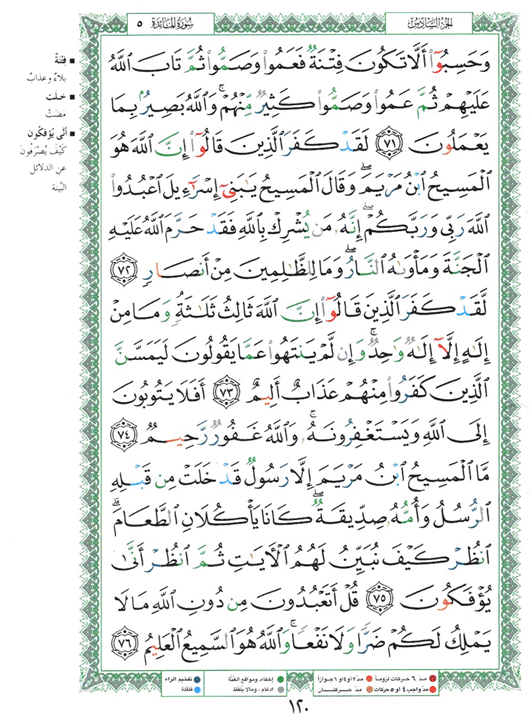 الجزء السادس
سورة المائدة ٥
وَحَسِبُوٓا۟ أَلَّا تَكُونَ فِتْنَةٌ فَعَمُوا۟ وَصَمُّوا۟ ثُمَّ تَابَ ٱللَّهُ
عَلَيْهِمْ ثُمَّ عَمُوا۟ وَصَمُّوا۟ كَثِيرٌ مِّنْهُمْ ۚ وَٱللَّهُ بَصِيرٌۢ بِمَا
يَعْمَلُونَ ٧١ لَقَدْ كَفَرَ ٱلَّذِينَ قَالُوٓا۟ إِنَّ ٱللَّهَ هُوَ
ٱلْمَسِيحُ ٱبْنُ مَرْيَمَ ۖ وَقَالَ ٱلْمَسِيحُ يَـٰبَنِىٓ إِسْرَٰٓءِيلَ ٱعْبُدُوا۟
ٱللَّهَ رَبِّى وَرَبَّكُمْ ۖ إِنَّهُۥ مَن يُشْرِكْ بِٱللَّهِ فَقَدْ حَرَّمَ ٱللَّهُ عَلَيْهِ
ٱلْجَنَّةَ وَمَأْوَىٰهُ ٱلنَّارُ ۖ وَمَا لِلظَّـٰلِمِينَ مِنْ أَنصَارٍ ٧٢
لَّقَدْ كَفَرَ ٱلَّذِينَ قَالُوٓا۟ إِنَّ ٱللَّهَ ثَالِثُ ثَلَـٰثَةٍ ۘ وَمَا مِنْ
إِلَـٰهٍ إِلَّآ إِلَـٰهٌ وَٰحِدٌ ۚ وَإِن لَّمْ يَنتَهُوا۟ عَمَّا يَقُولُونَ لَيَمَسَّنَّ
ٱلَّذِينَ كَفَرُوا۟ مِنْهُمْ عَذَابٌ أَلِيمٌ ٧٣ أَفَلَا يَتُوبُونَ
إِلَى ٱللَّهِ وَيَسْتَغْفِرُونَهُۥ ۚ وَٱللَّهُ غَفُورٌ رَّحِيمٌ ٧٤
مَّا ٱلْمَسِيحُ ٱبْنُ مَرْيَمَ إِلَّا رَسُولٌ قَدْ خَلَتْ مِن قَبْلِهِ
ٱلرُّسُلُ وَأُمُّهُۥ صِدِّيقَةٌ ۖ كَانَا يَأْكُلَانِ ٱلطَّعَامَ ۗ
ٱنظُرْ كَيْفَ نُبَيِّنُ لَهُمُ ٱلْـَٔايَـٰتِ ثُمَّ ٱنظُرْ أَنَّىٰ
يُؤْفَكُونَ ٧٥ قُلْ أَتَعْبُدُونَ مِن دُونِ ٱللَّهِ مَا لَا
يَمْلِكُ لَكُمْ ضَرًّا وَلَا نَفْعًا ۚ وَٱللَّهُ هُوَ ٱلسَّمِيعُ ٱلْعَلِيمُ ٧٦
■ فِتْنَةٌ
بلاءٌ وعذابٌ
■ خَلَت
مَضَتْ
■ أَنَّى يُؤْفَكُون
كَيْفَ يُصْرَفُونَ
عن الدلائل
البيّنة
مدّ ٦ حركات لزوماً
مدّ ٢ أو ٤ أو ٦ جوازاً
إخفاء، ومواقع الغُنَّة
تفخيم الراء
مدّ واجب ٤ أو ٥ حركات
مدّ حركتان
إدغام، وما لا يُلفَظ
قلقلة
١٢٠